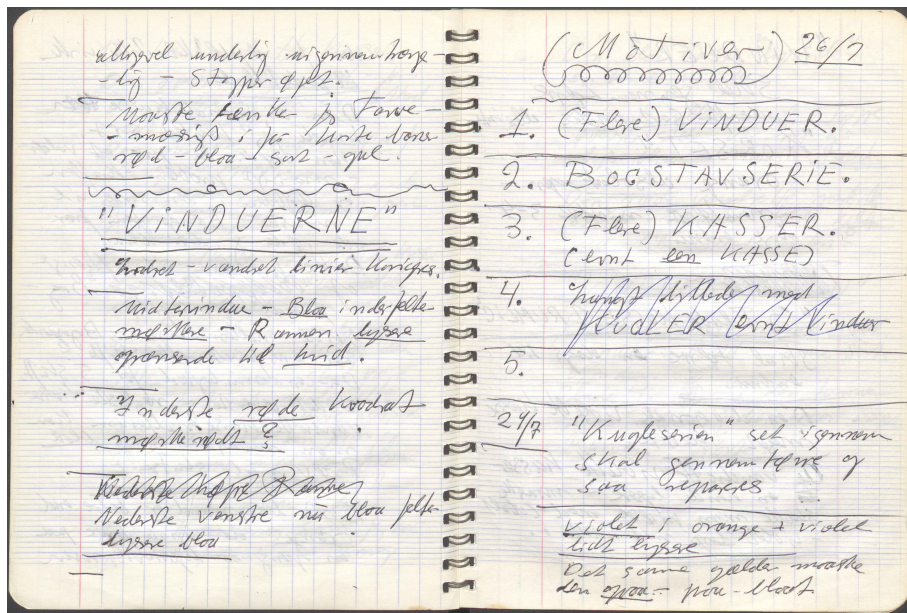 alligevel underlig uigennemtrænge-
-lig - Stopper øjet.
Maaske tænke jeg Farve-
-mæssigt i for korte baner
rød - blaa - sort - gul.
"ViNDUERNE"
Lodret - vandret linier
Midtervindue - Blaa inderfelter
mørkere - Rammen lysere
grænsende til hvid.
Inderste røde Kvadrat
mørkerødt ?
Nederste venstre nu blaa felter
lysere blaa
(MOTiver) 26/7
1. (Flere) ViNDUER.
2. BOGSTAVSERIE.
3. (Flere) KASSER.
(evnt een KASSE)
4. billede med
evnt Vinduer
5.
24/7 "Kugleserien" set igennem
skal gennem og
saa repareres
violet i orange + violet
lidt lysere
Det samme gælder maaske
den graa-